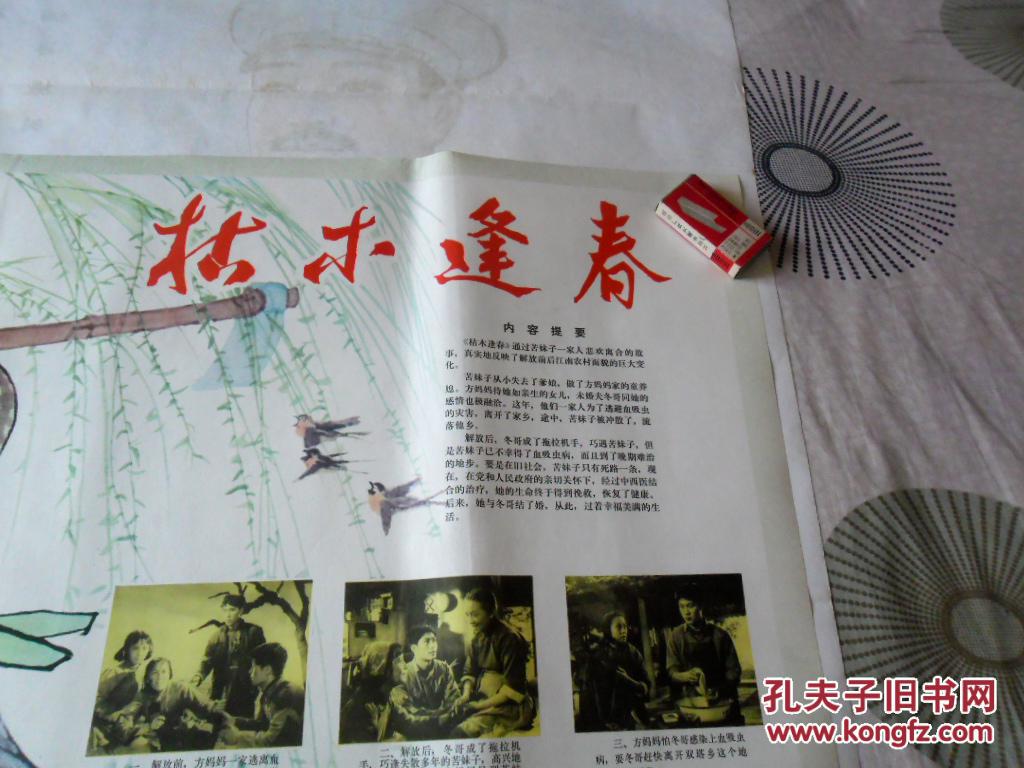 枯木逢春
内容提要
《枯木逢春》通过苦妹子一家人悲欢离合的故
事，真实地反映了解放前后江南农村面貌的巨大变
化。
苦妹子从小失去了爹娘，做了方妈妈家的童养
媳。方妈妈待她如亲生的女儿，未婚夫冬哥同她的
感情也极融洽。这年，他们一家人为了逃避血吸虫
的灾害，离开了家乡，途中，苦妹子被冲散了，流
落他乡。
解放后，冬哥成了拖拉机手，巧遇苦妹子，但
是苦妹子已不幸得了血吸虫病，而且到了晚期难治
的地步。要是在旧社会，苦妹子只有死路一条，现
在，在党和人民政府的亲切关怀下，经过中西医结
合的治疗，她的生命终于得到挽救，恢复了健康。
后来，她与冬哥结了婚，从此，过着幸福美满的生
活。
解放前，方妈妈一家逃离血
二、解放后，冬哥成了拖拉机
手，巧逢失散多年的苦妹子，高兴地
三、方妈妈怕冬哥感染上血吸虫
病，要冬哥赶快离开双塔乡这个地
孔夫子旧书网
www.kongfz.com